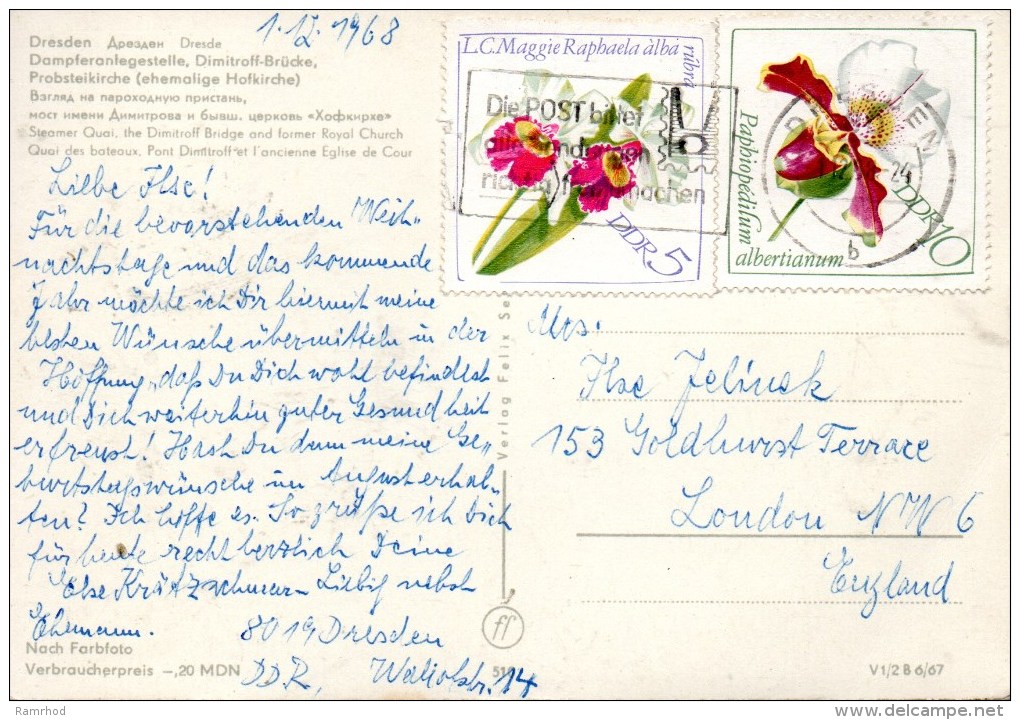 1.12.1968
Dresden Дрезден Dresde
Dampferanlegestelle, Dimitroff-Brücke,
Probsteikirche (ehemalige Hofkirche)
Взгляд на пароходную пристань,
мост имени Димитрова и бывш. церковь «Хофкирхе»
Steamer Quai, the Dimitroff Bridge and former Royal Church
Quai des bateaux, Pont Dimitroff et l'ancienne Eglise de Cour
Liebe Ilse!
Für die bevorstehenden Weih-
nachtstage und das kommende
Jahr möchte ich Dir hiermit meine
besten Wünsche übermitteln in der
Hoffnung, daß Du Dich wohl befindest
und Dich weiterhin guter Gesundheit
erfreust! Hast Du denn meine Ge-
burtstagswünsche im August erhal-
ten? Ich hoffe es. So grüße ich Dich
für heute recht herzlich Deine
Else Krätzschmar-Liebig nebst
Ehemann.
8019 Dresden
DDR, 14
Nach Farbfoto
Verbraucherpreis -,20 MDN
L.C. Maggie Raphaela àlba rúbra
DDR 5
Die POST bittet
alle Sendungen
richtig freizumachen
Paphiopédilum
albertianum
DDR 10
DRESDEN
24
b
Verlag Felix
Mrs.
Ilse Jelinek
153 Goldhurst Terrace
London NW 6
England
ff
V 1/2 B 6/67
Ramrhod
delcampe.net